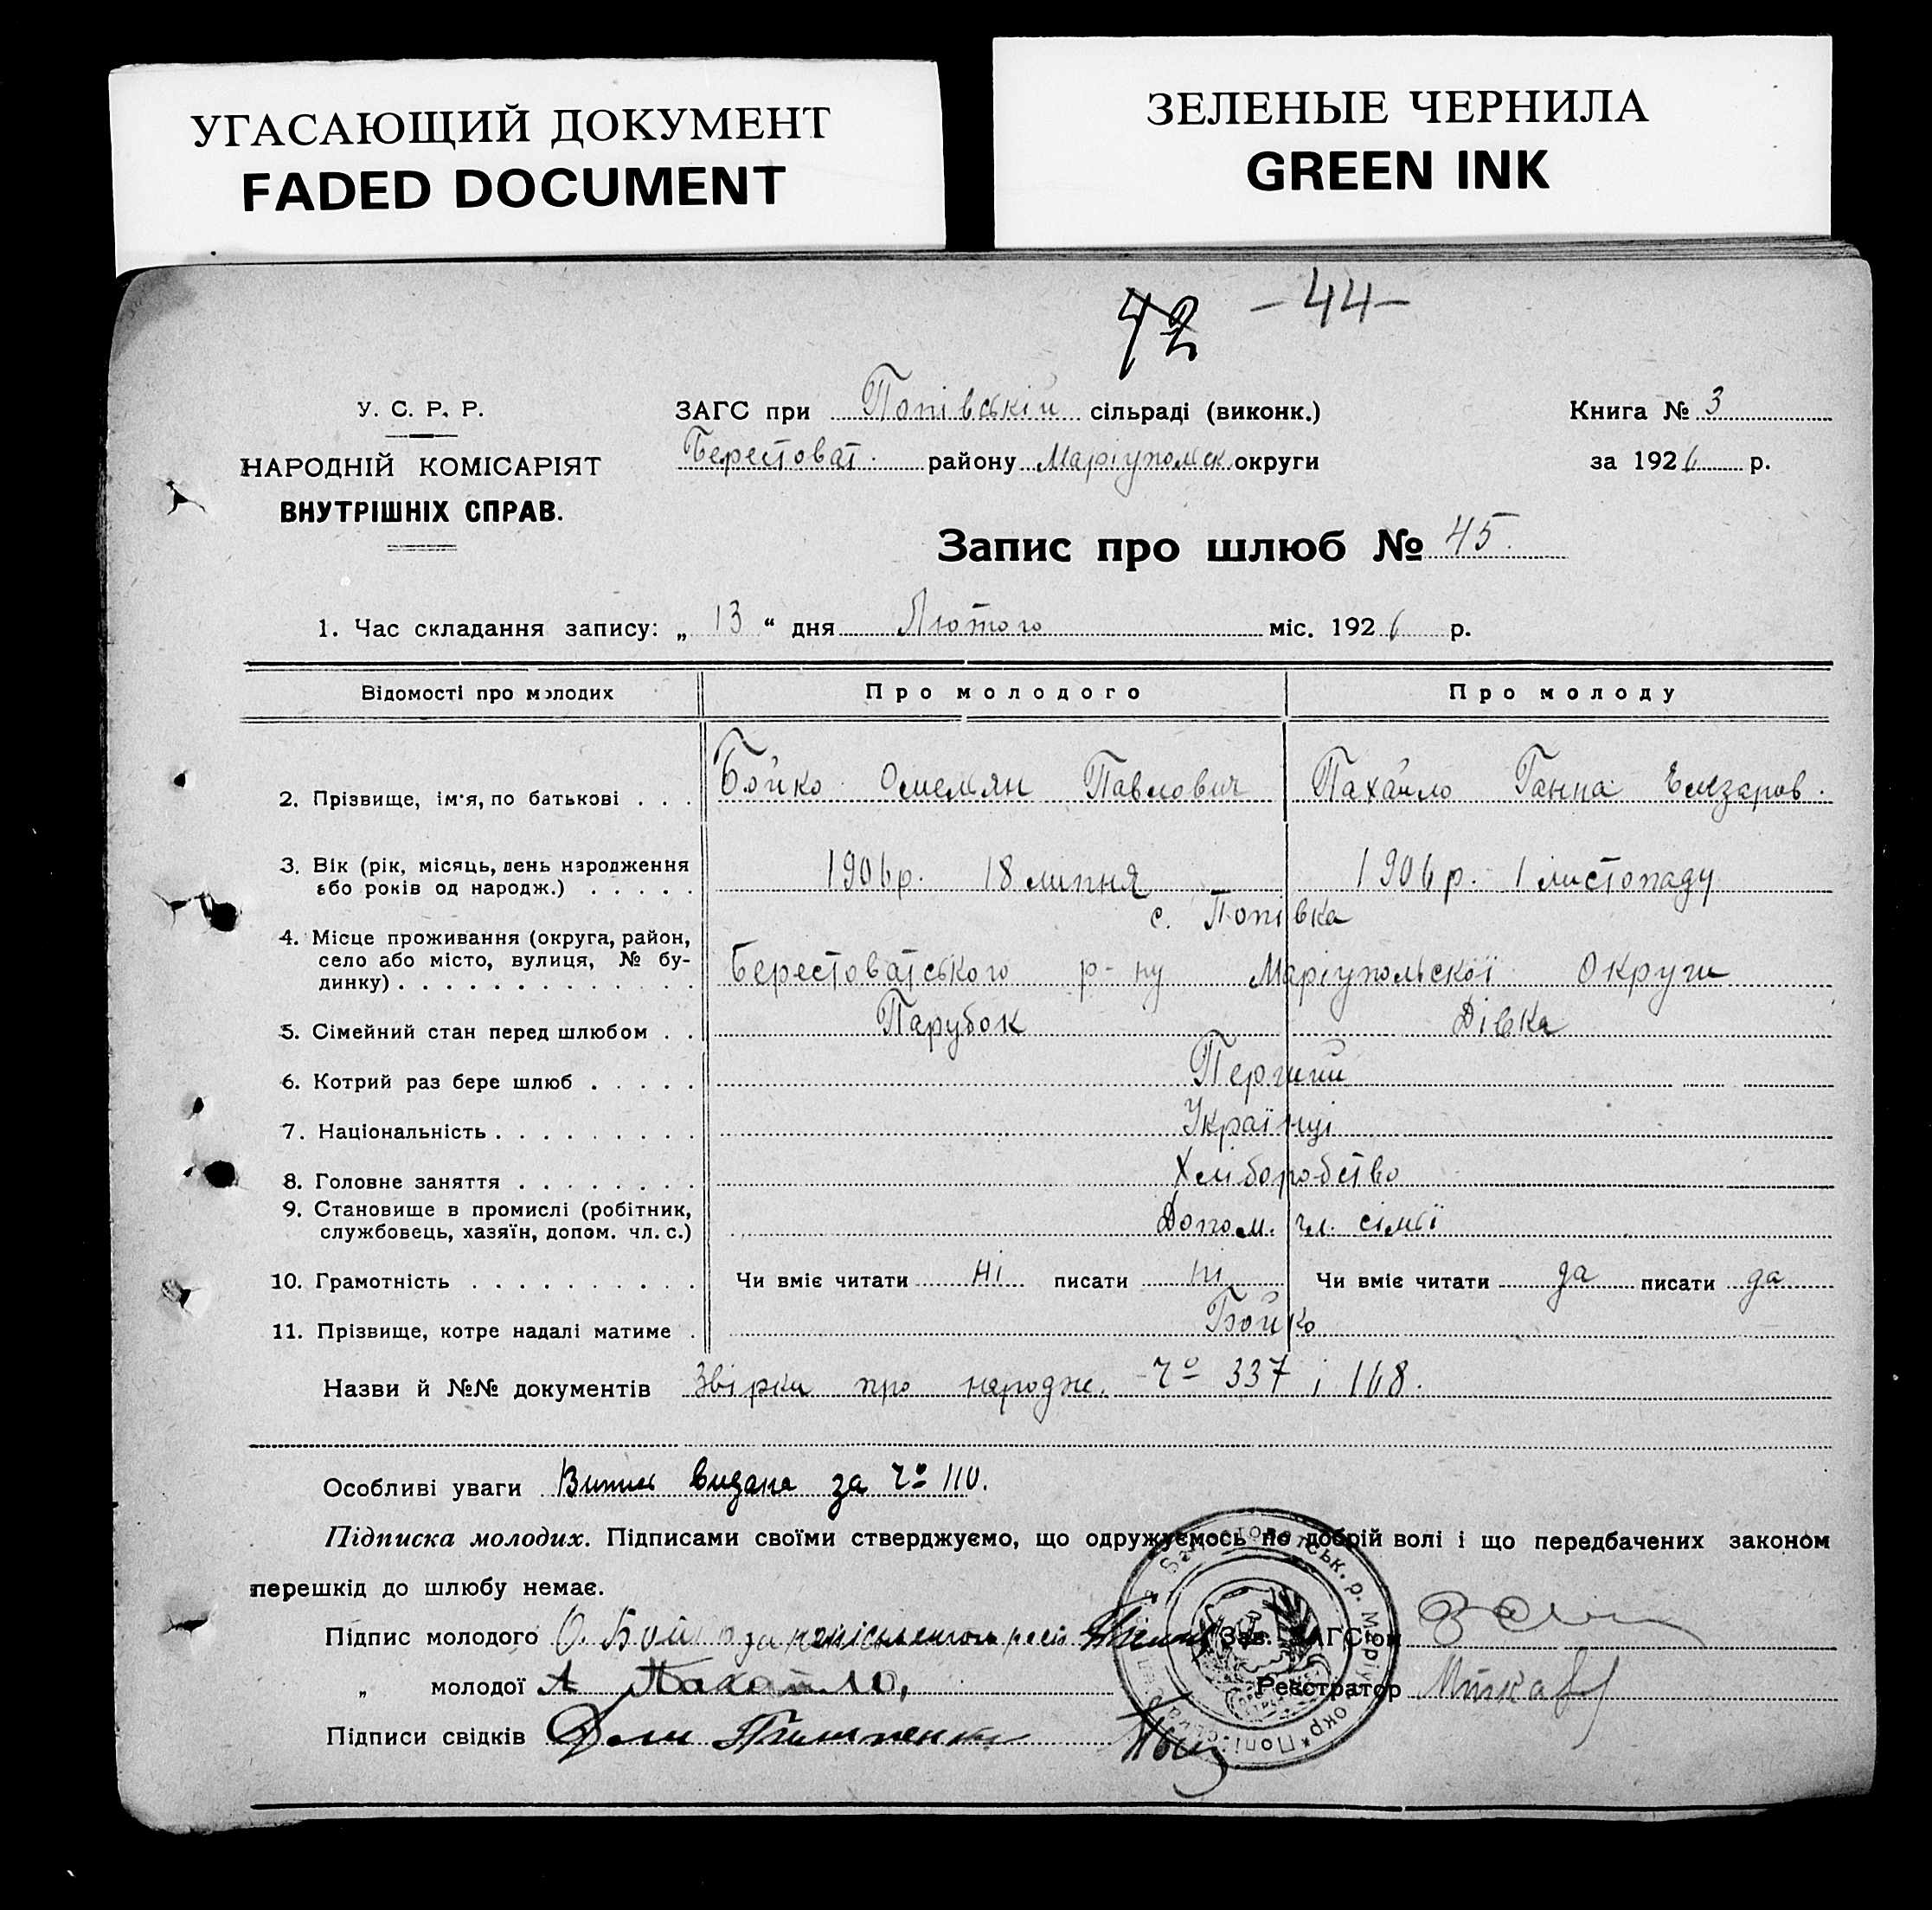 УГАСАЮЩИЙ ДОКУМЕНТ
FADED DOCUMENT
ЗЕЛЕНЫЕ ЧЕРНИЛА
GREEN INK
42 -44-
У. С. Р. Р.
НАРОДНІЙ КОМІСАРІЯТ
ВНУТРІШНІХ СПРАВ.
ЗАГС при Попівській сільраді (виконк.)
Берестоват. району Маріупольск округи
Книга № 3
за 1926 р.
Запис про шлюб № 45.
1. Час складання запису: „ 13 “ дня Лютого міс. 1926 р.
Відомості про молодих Про молодого Про молоду
2. Прізвище, ім'я, по батькові . . . Бойко Омельян Павлович Пахайло Ганна Елизаров.
3. Вік (рік, місяць, день народження
або років од народж.) . . . . . 1906 р. 18 липня 1906 р. 1 листопаду
с. Попівка
4. Місце проживання (округа, район,
село або місто, вулиця, № бу-
динку) . . . . . . . . . . . . . Берестоватського р-ну Маріупольскої Округи
5. Сімейний стан перед шлюбом . . Парубок Дівка
6. Котрий раз бере шлюб . . . . . Перший
7. Національність . . . . . . . . . Українці
8. Головне заняття . . . . . . . . Хліборобство
9. Становище в промислі (робітник,
службовець, хазяїн, допом. чл. с.) Допом. чл. сімї
10. Грамотність . . . . . . . . . . Чи вміє читати ні писати ні Чи вміє читати да писати да
11. Прізвище, котре надалі матиме . Бойко
Назви й №№ документів Звірки про народж. Чº 337 і 168.
Особливі уваги Випис видана за Чº 110.
Підписка молодих. Підписами своїми стверджуємо, що одружуємось по добрій волі і що передбачених законом
перешкід до шлюбу немає.
Підпис молодого О. Бойко за Зав. ЗАГС'ом
„ молодої А Пахайло, Реєстратор
Підписи свідків
Берестоватськ. р. Маріуп. окр. * Попівська